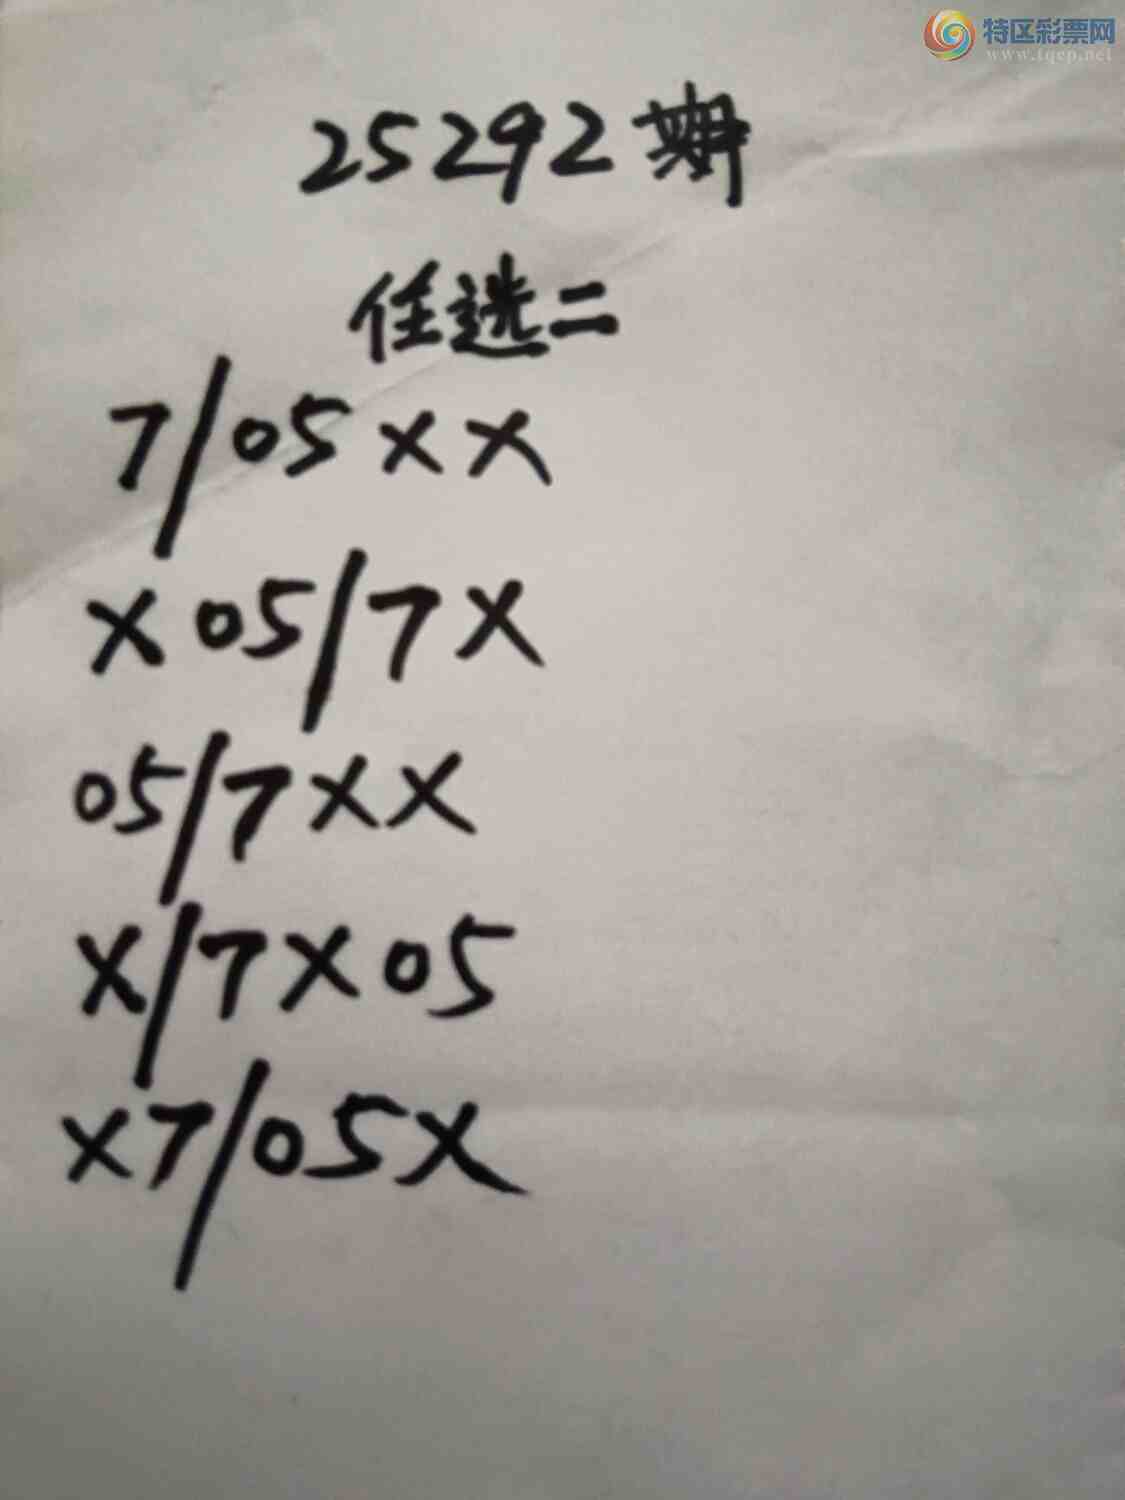 特区彩票网
www.tqcp.net
25292期
任选二
7/05XX
X05/7X
05/7XX
X/7X05
X7/05X